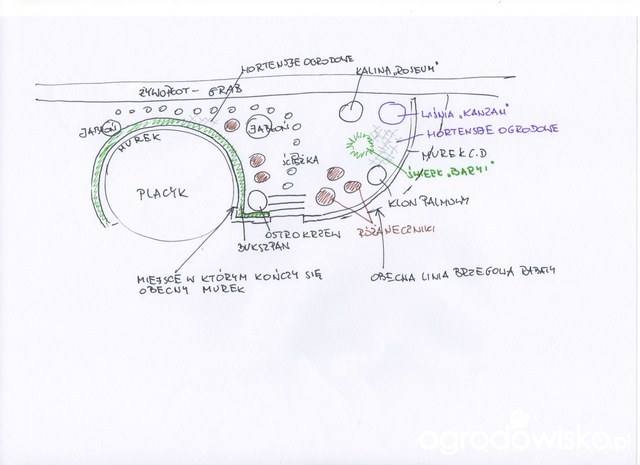 HORTENSJE OGRODOWE
KALINA „ROSEUM"
ŻYWOPŁOT - GRAB
JABŁOŃ
JABŁOŃ
WIŚNIA „KANZAN"
HORTENSJE OGRODOWE
MUREK
MUREK C.D
ŚCIEŻKA
ŚWIERK „BARYI"
PLACYK
KLON PALMOWY
OSTROKRZEW
RÓŻANECZNIKI
BUKSZPAN
MIEJSCE W KTÓRYM KOŃCZY SIĘ
OBECNY MUREK
OBECNA LINIA BRZEGOWA RABATY
ogrodowisko.pl